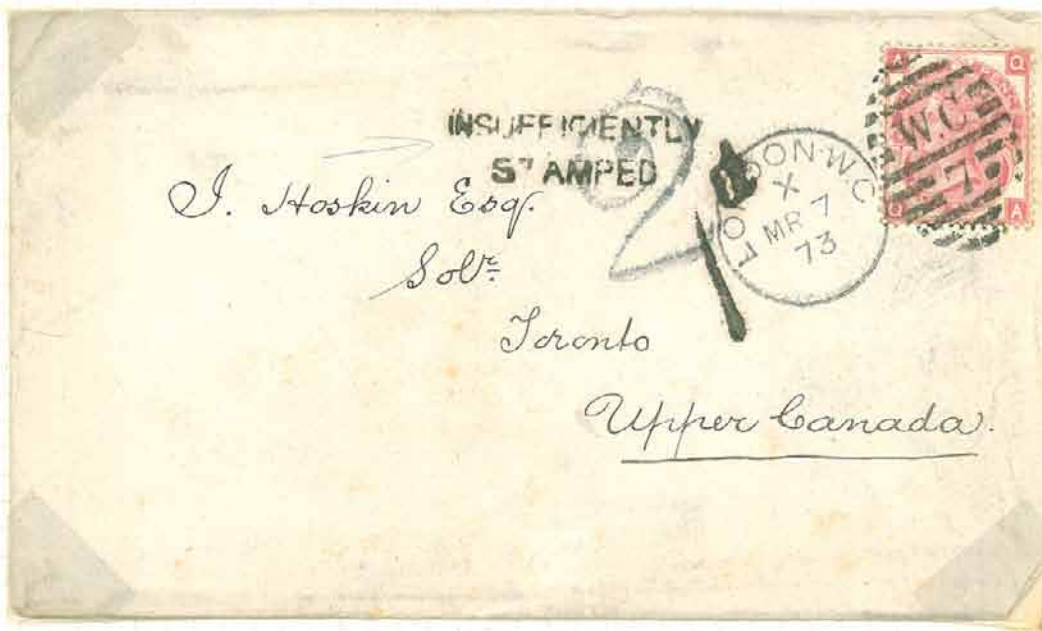 INSUFFICIENTLY
STAMPED
2
LONDON·W.C
X
MR 7
73
W.C
7
A Q
Q A
J. Hoskin Esq.
Solr
Toronto
Upper Canada.